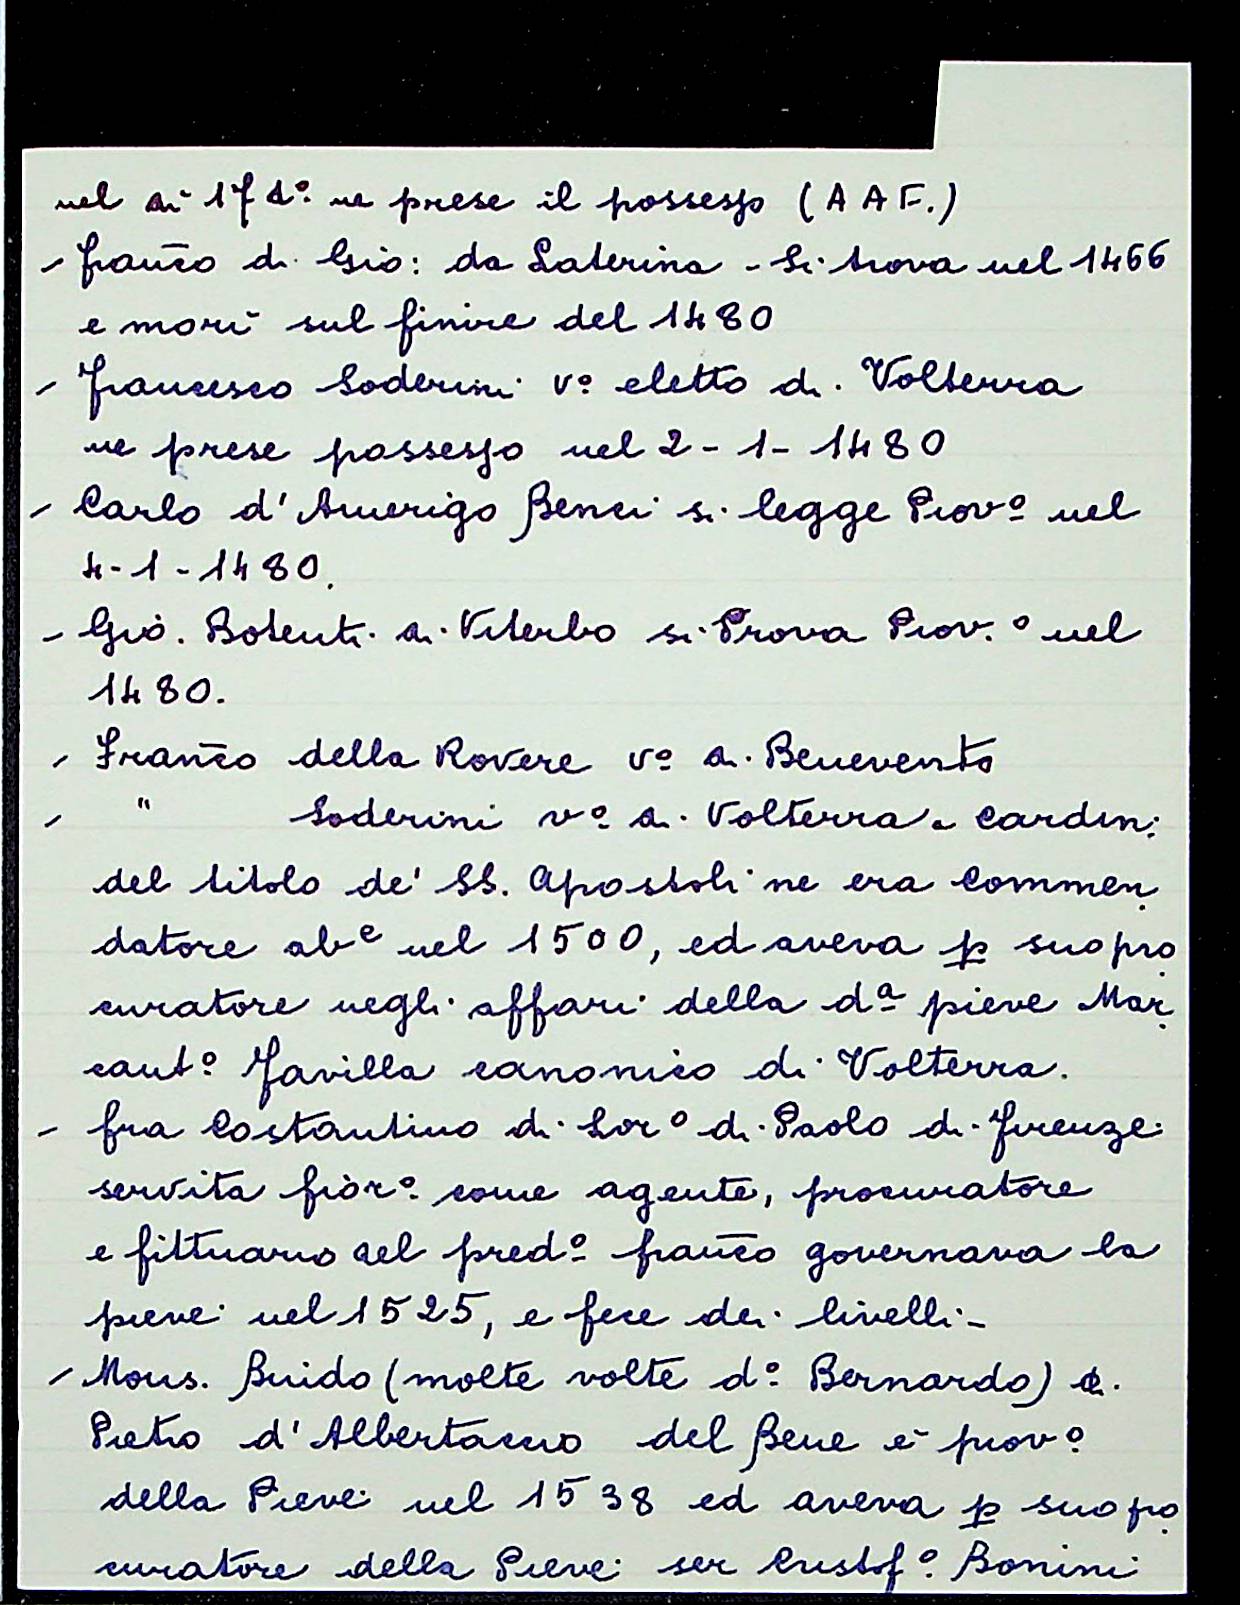 nel di 1 f d.º ne prese il possesso (A A F.)
- franc̄o di Gio: da Laterina - Si trova nel 1466
e morì sul finire del 1480
- francesco Soderini vº eletto di Volterra
ne prese possesso nel 2-1-1480
- Carlo d'Amerigo Benci si legge Piovº nel
4-1-1480.
- Giò. Botenti di Viterbo si Trova Piov.º nel
1480.
- Franc̄o della Rovere vº di Benevento
- " Soderini vº di Volterra e Cardin:
del titolo de' SS. Apostoli ne era Commen
datore abᵉ nel 1500, ed aveva p suo pro
curatore negli affari della dª pieve Mar
cantº Favilla canonico di Volterra.
- fra Costantino di Lorº di Paolo di firenze
servita fiorº come agente, procuratore
e fittuario del predº franc̄o governava la
pieve nel 1525, e fece dei livelli -
- Mons. Buido (molte volte dº Bernardo) di
Pietro d'Albertaccio del Bene è piovº
della Pieve nel 1538 ed aveva p suo pro
curatore della Pieve ser Cristofº Bonini